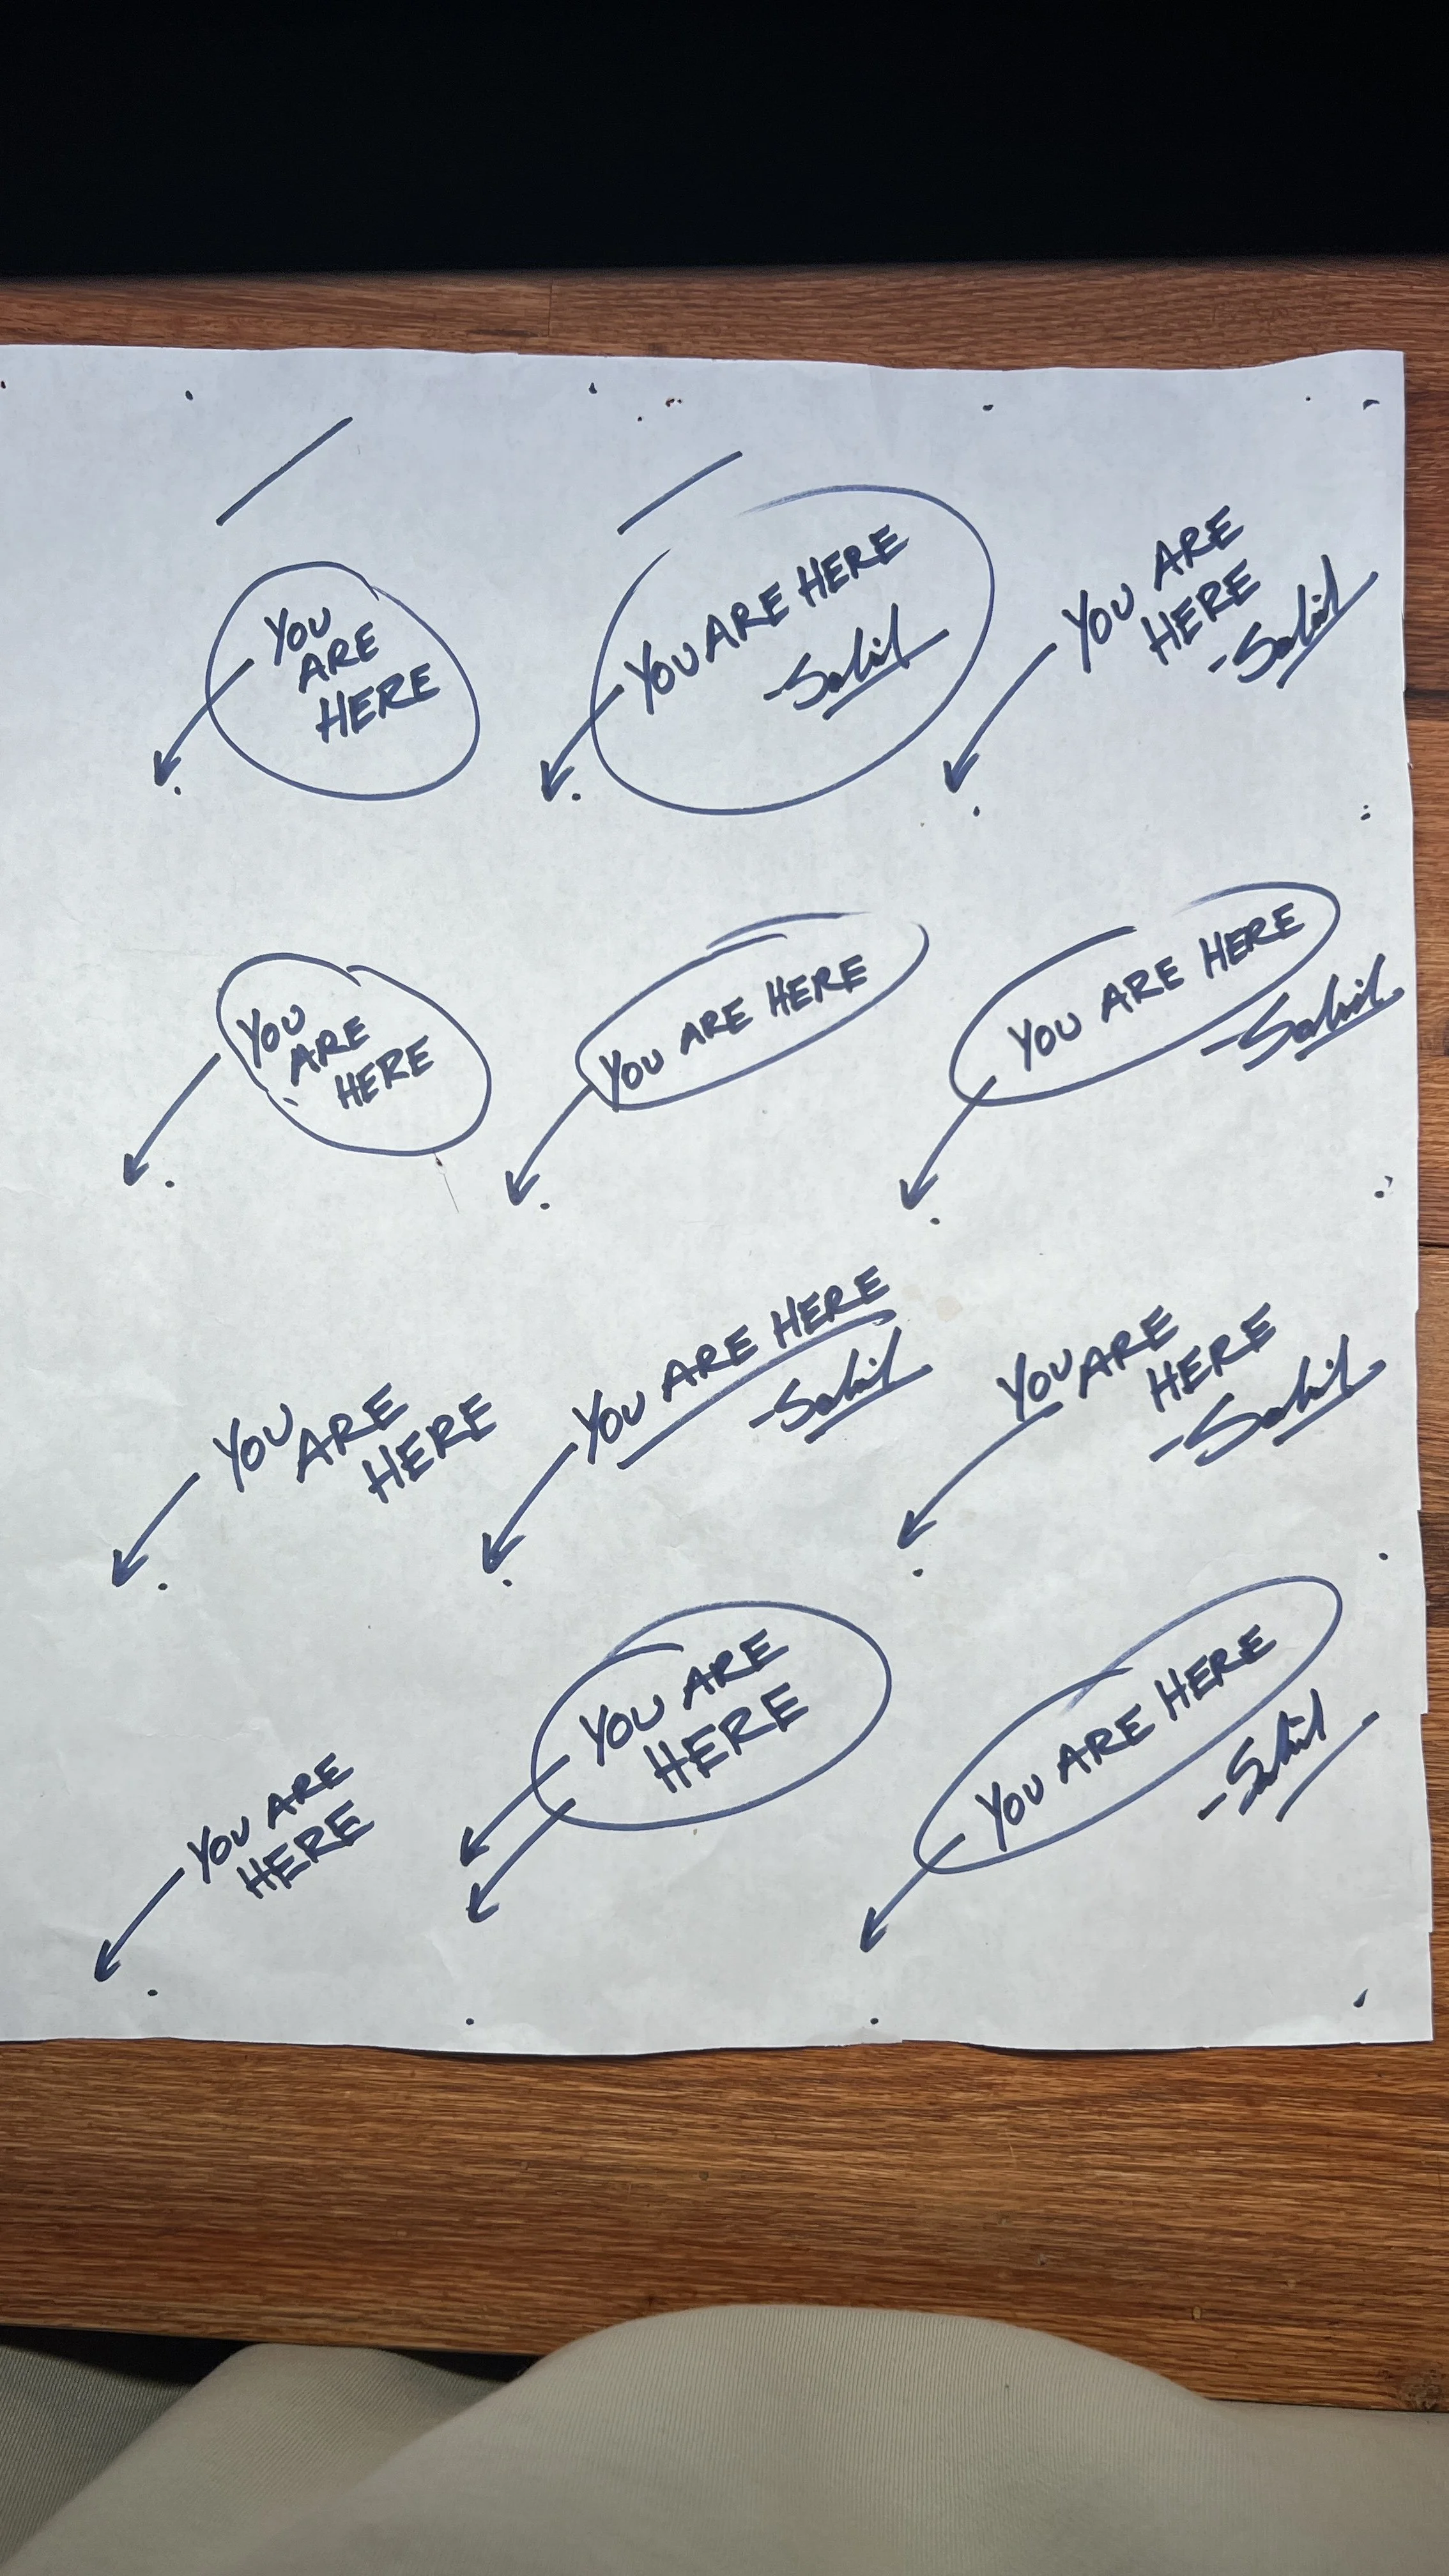 YOU
ARE
HERE
YOU ARE HERE
-Sahil
YOU ARE
HERE
-Sahil
YOU
ARE
HERE
YOU ARE HERE
YOU ARE HERE
-Sahil
YOU ARE
HERE
YOU ARE HERE
-Sahil
YOU ARE
HERE
-Sahil
YOU ARE
HERE
YOU ARE
HERE
YOU ARE HERE
-Sahil